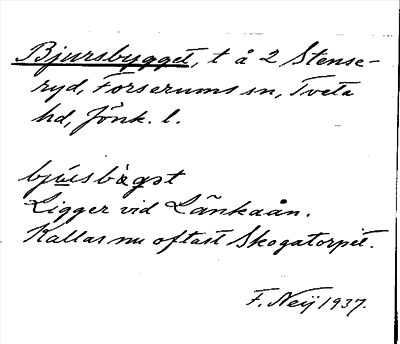 Bjursbygget, t å 2 Stense-
ryd, Forserums sn, Tveta
hd, Jönk. l.
bjúsbỳgət
Ligger vid Länkaån.
Kallas nu oftast Skogatorpet.
F. Neij 1937.